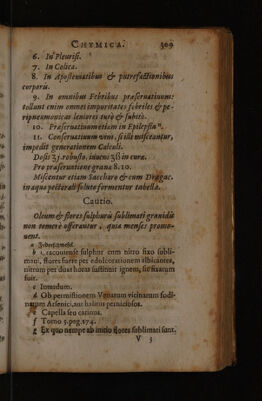 CHYMICA. 309
6. In Pleurisi.
7. In Colica.
8. In Apostematibus & putrefactionibus
corporis.
9. In omnibus Febribus præseruatiuum:
tollunt enim omnes impuritates febriles & pe-
ripneumonicas leniores tutò & subitò.
10. Præseruatiuum etiam in Epilepsia
11. Conseruatiuum vini, si illi misceantur,
impedit generationem Calculi.
Dosis ʒj. robusto, iuueni ʒß in cura.
Pro præseruatione grana 8. 10.
Miscentur etiam Saccharo & cum Dragac.
in aqua pectorali soluto formentur tabellæ.
Cautio.
Oleum & flores sulphuris sublimati grauidis
non temerè offerantur, quia menses promo-
uent.
a
b sulphur cum nitro fixo subli-
mari, flores supra per edulcorationem albicantes,
nitrum per duas horas sustinuit ignem, sic fixatum
fuit.
c Iomadum.
d Ob permistionem Venarum vicinarum fodi-
narum Arsenici, aut halitus perniciosos.
e Capella seu catinus.
f Tomo 3. pag. 174.
g Ex quo nempe ab initio flores sublimati sunt.
V 3